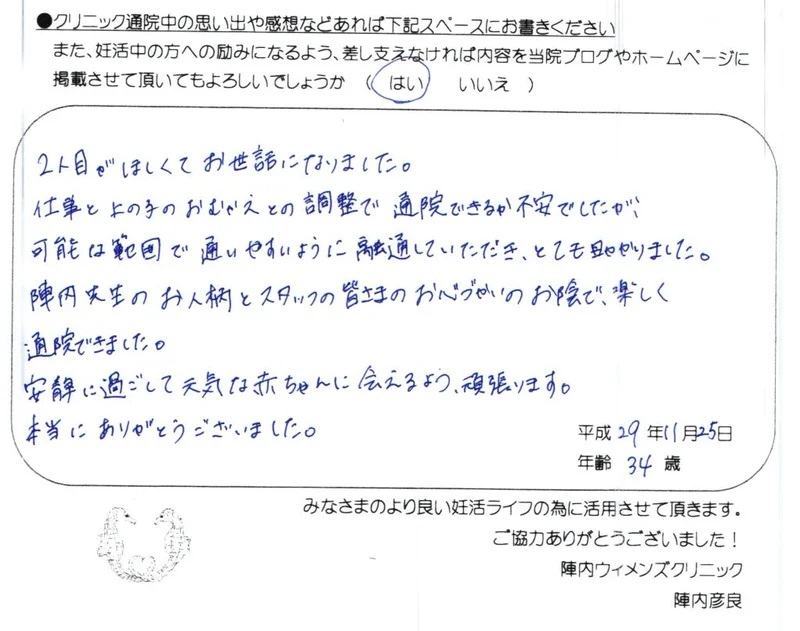 ●クリニック通院中の思い出や感想などあれば下記スペースにお書きください
また、妊活中の方への励みになるよう、差し支えなければ内容を当院ブログやホームページに
掲載させて頂いてもよろしいでしょうか （ はい いいえ ）
2人目がほしくてお世話になりました。
仕事と上の子のおむかえとの調整で通院できるか不安でしたが、
可能な範囲で通いやすいように融通していただき、とても助かりました。
陣内先生のお人柄とスタッフの皆さまのお心づかいのお陰で、楽しく
通院できました。
安静に過ごして元気な赤ちゃんに会えるよう、頑張ります。
本当にありがとうございました。
平成 29 年 11 月 25日
年齢 34 歳
みなさまのより良い妊活ライフの為に活用させて頂きます。
ご協力ありがとうございました！
陣内ウィメンズクリニック
陣内彦良